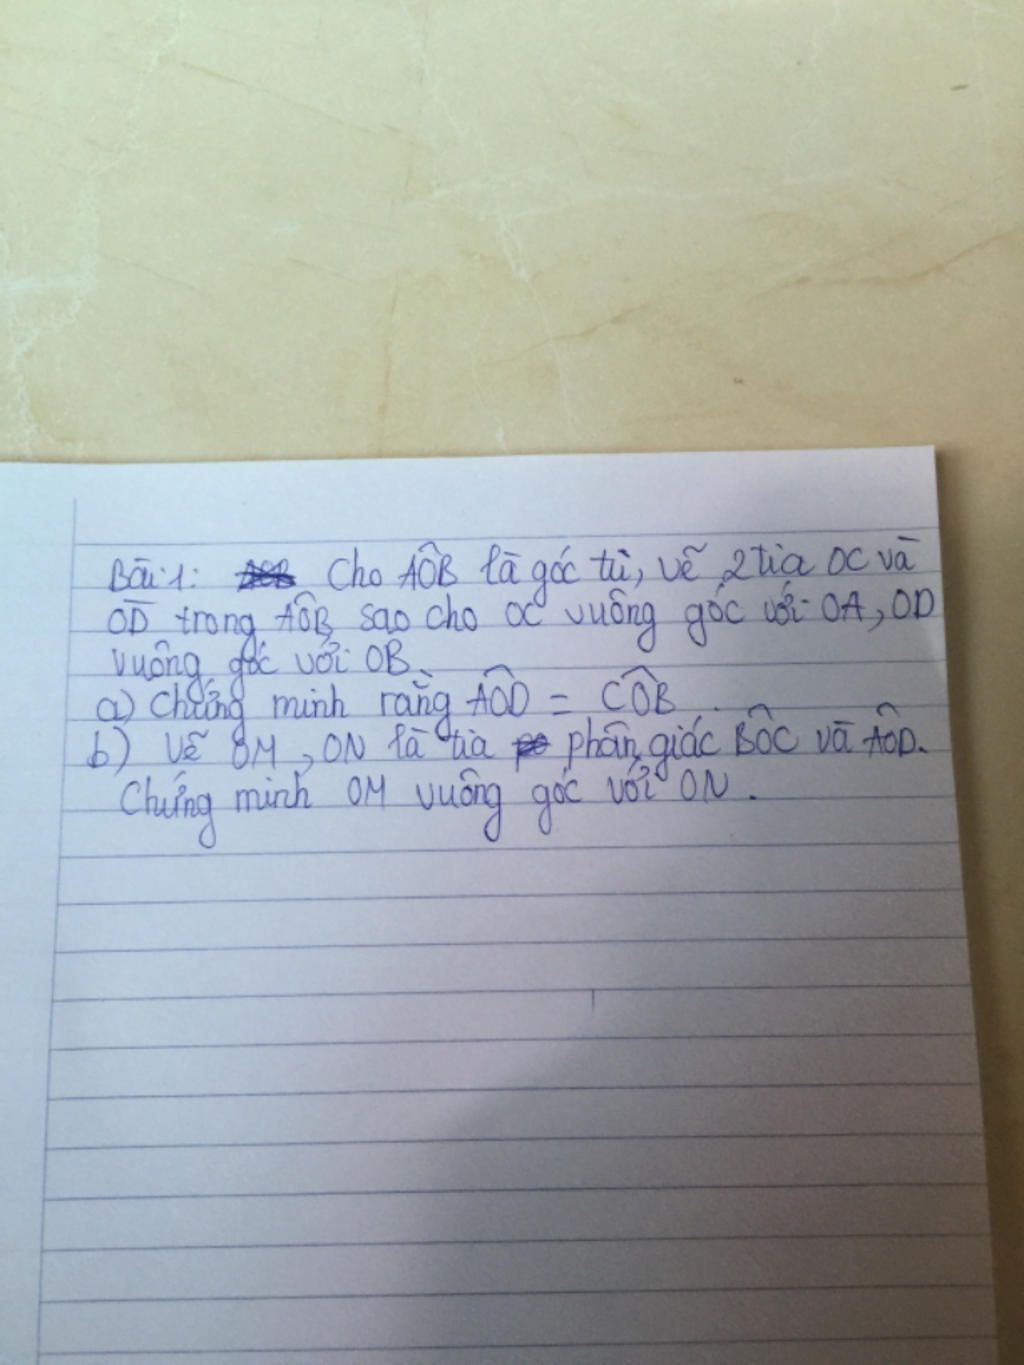 Bài 1: Cho AÔB là góc tù, vẽ 2 tia OC và
OD trong AÔB sao cho OC vuông góc với OA, OD
vuông góc với OB.
a) Chứng minh rằng AÔD = CÔB.
b) Vẽ OM, ON là tia phân giác BÔC và AÔD.
Chứng minh OM vuông góc với ON.